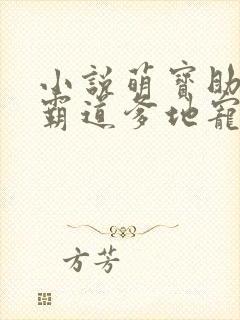 小説萌寶助
霸道爹地寵
方芳